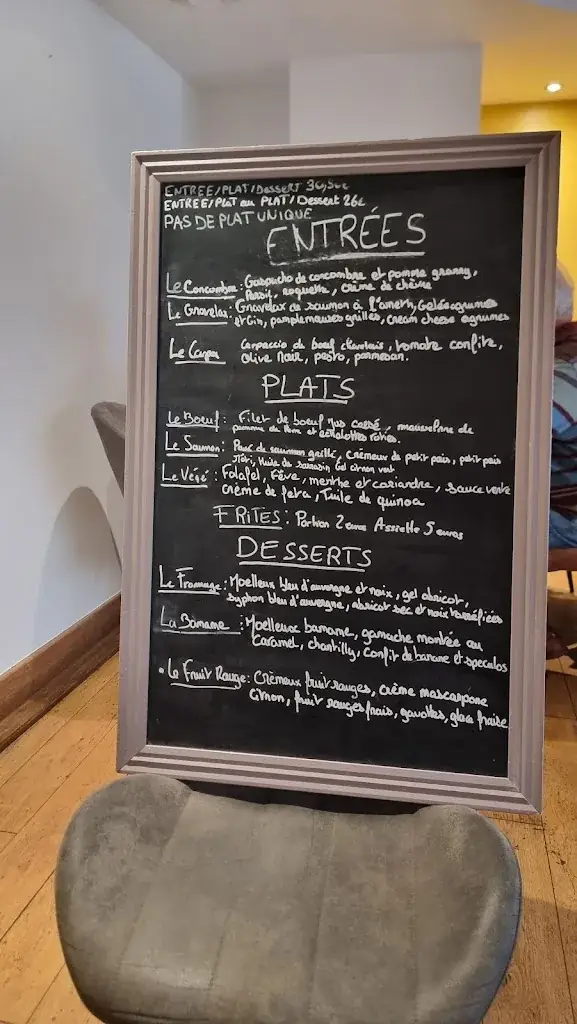 ENTREE/PLAT/Dessert 30,50€
ENTREE/Plat ou PLAT/Dessert 26€
PAS DE PLAT UNIQUE
ENTRÉES
Le Concombre: Gaspacho de concombre et pomme granny,
Persil, roquette, crème de chèvre
Le Gravelax: Gravelax de saumon à l'aneth, Gelée agrumes
et Gin, pamplemousses grillés, cream cheese agrumes
Le Carpa Carpaccio de boeuf charolais, tomate confite,
Olive noir, pesto, parmesan.
PLATS
Le Boeuf: Filet de boeuf jus corsé, mousseline de
pomme de terre et échalottes roties.
Le Saumon: Pavé de saumon grillé, Crémeux de petit pois, petit pois
rôti, Huile de sarrasin Gel citron vert
Le Végé: Falafel, Fève, menthe et coriandre, sauce verte
Crème de feta, Tuile de quinoa
FRITES: Portion 2 euros Assiette 5 euros
DESSERTS
Le Fromage: Moelleux bleu d'auvergne et noix, gel abricot,
Syphon bleu d'auvergne, abricot sec et noix torréfiées
La Banane: Moelleux banane, ganache montée au
Caramel, chantilly, Confit de banane et speculos
• Le Fruit Rouge: Crémeux fruit rouges, crème mascarpone
Citron, fruit rouges frais, gavottes, glace fraise